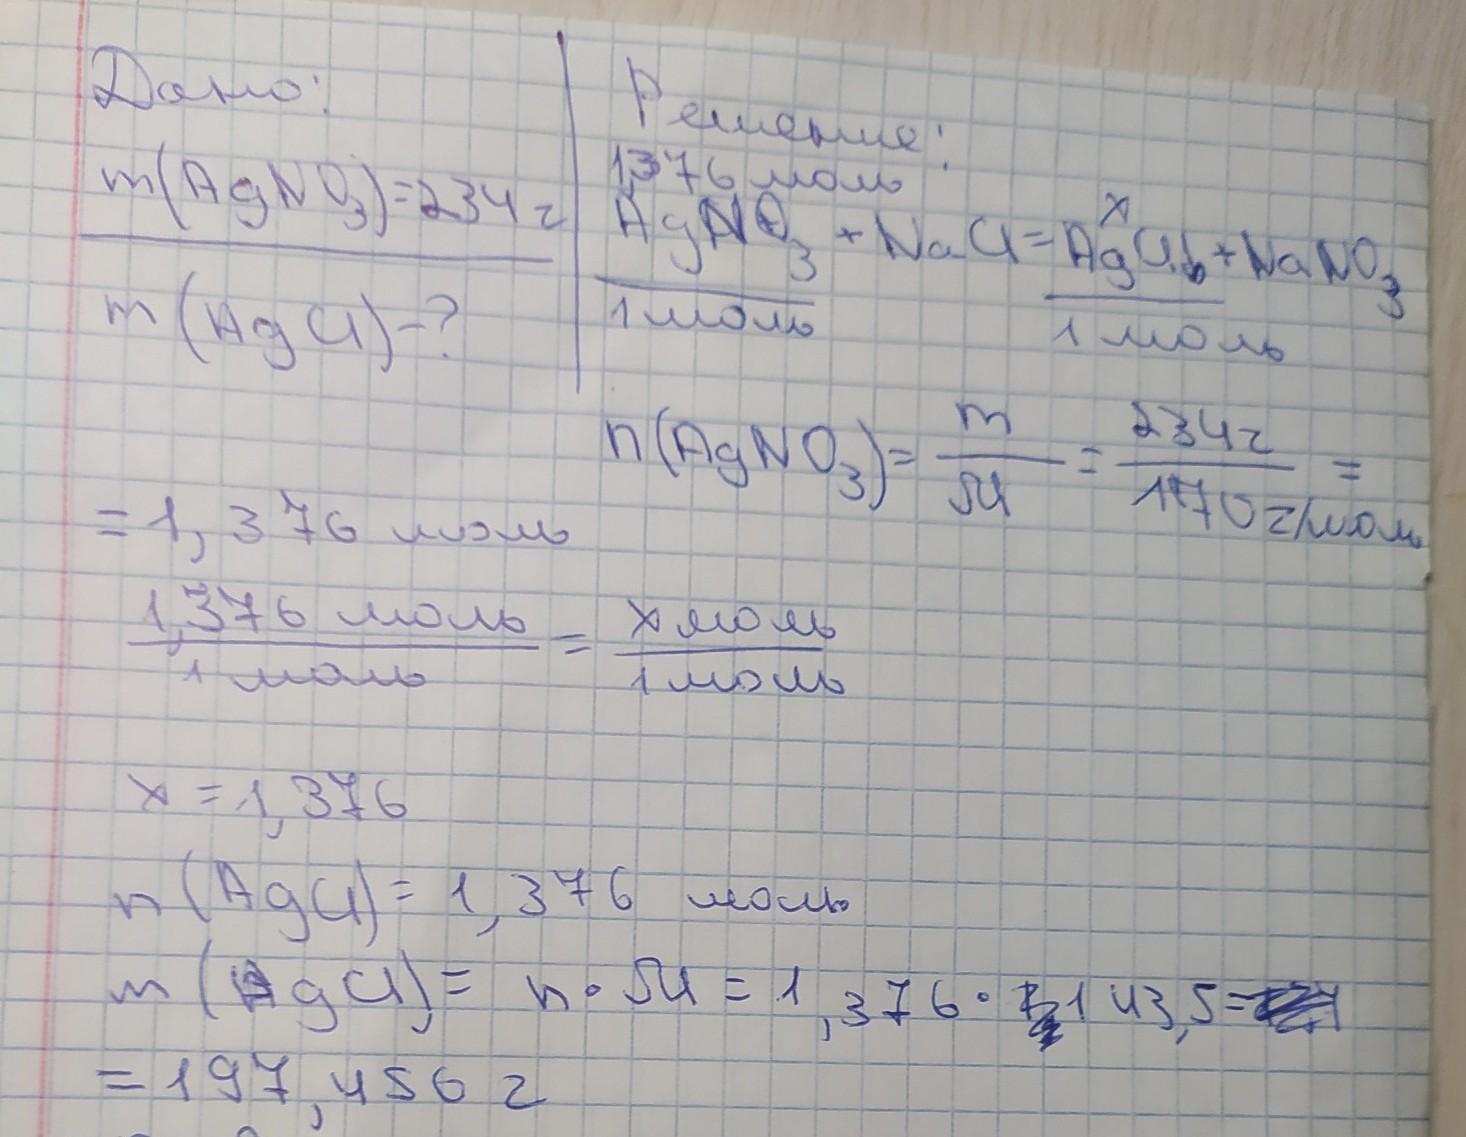 Дано:
m(AgNO₃)=234г
m(AgCl)-?
Решение:
1,376 моль
x
AgNO₃ + NaCl = AgCl↓ + NaNO₃
1 моль 1 моль
n(AgNO₃) = m/M = 234г/170г/моль =
= 1,376 моль
1,376 моль/1 моль = x моль/1 моль
x = 1,376
n(AgCl) = 1,376 моль
m(AgCl) = n·M = 1,376·143,5 =
= 197,456 г